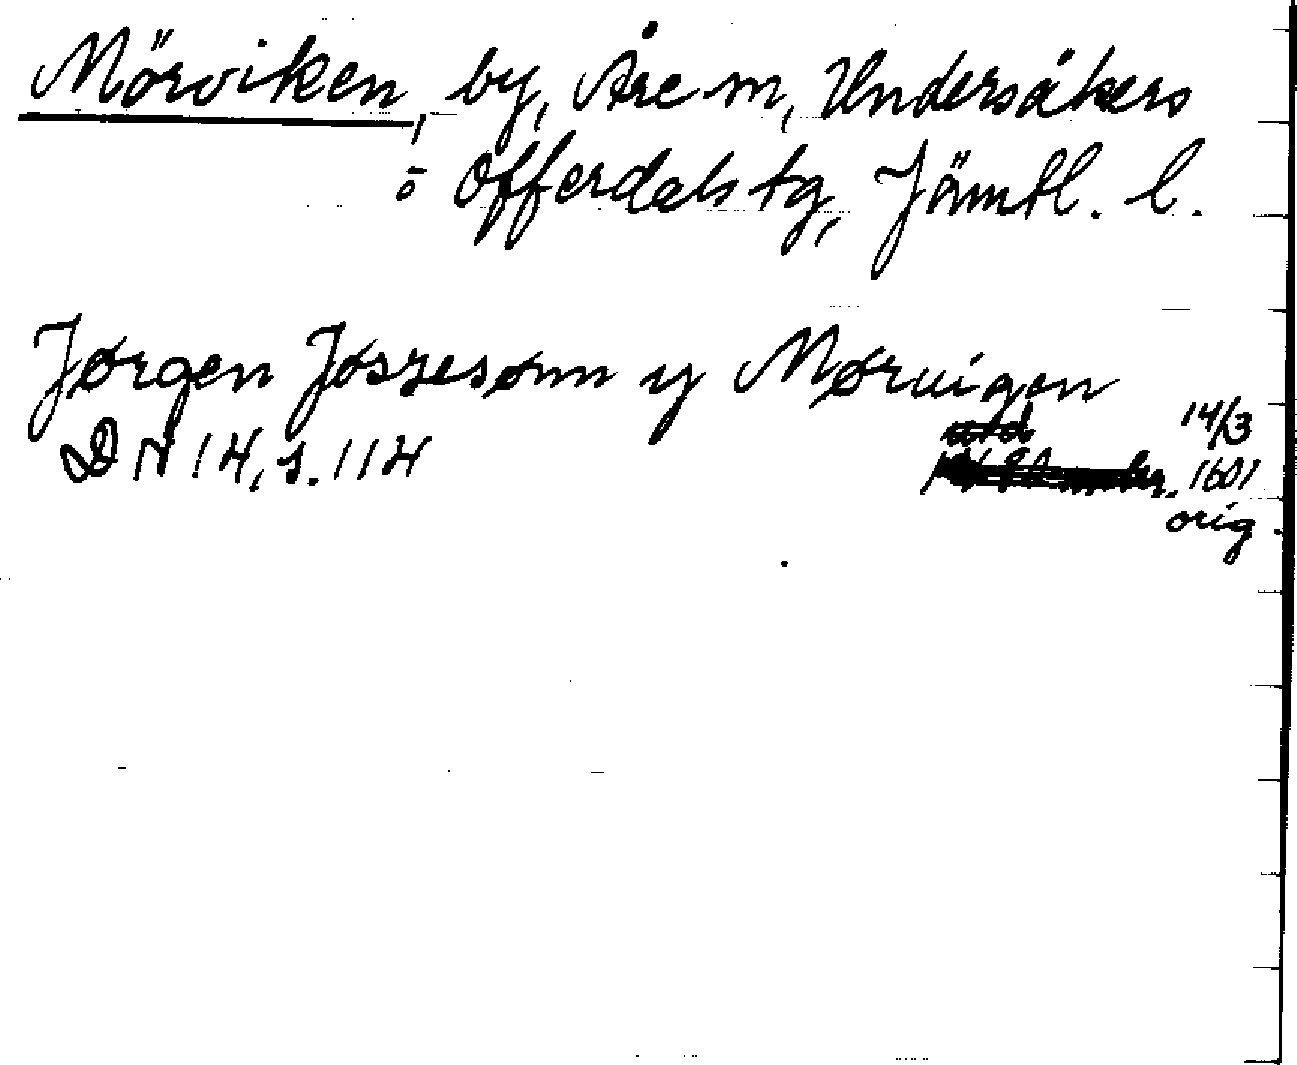 Mörviken, by, Åre sn, Undersåkers
o Offerdals tg, Jämtl. l.
Jørgen Joszesønn y Møruigen
14/3
DN 14, s. 114 1601
orig.